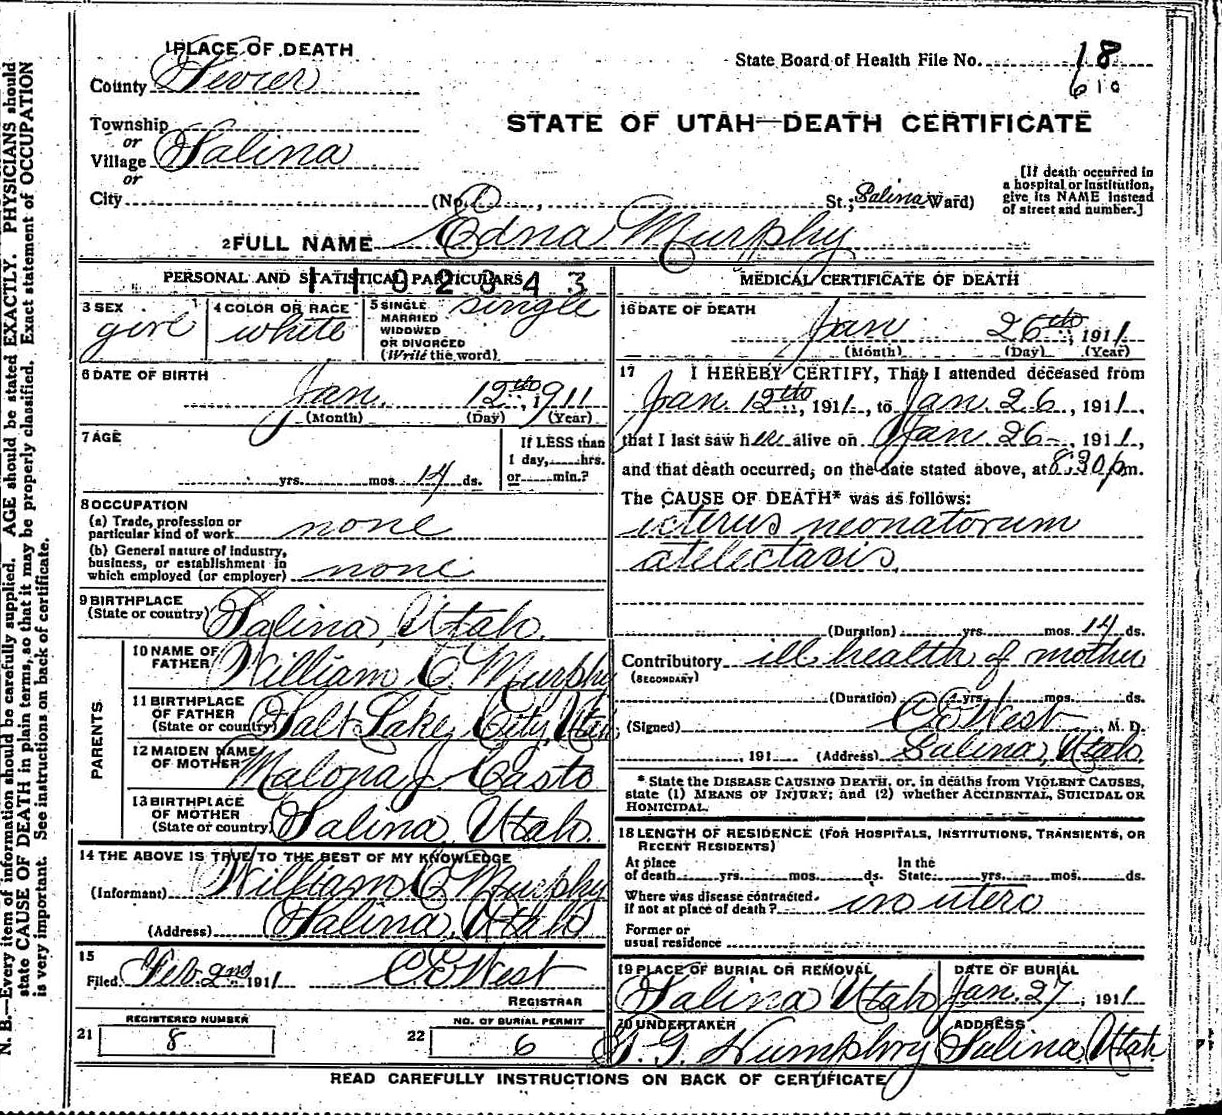 1 PLACE OF DEATH
State Board of Health File No. 18
610
County Sevier
STATE OF UTAH—DEATH CERTIFICATE
Township
or
Village Salina
or
City (No. St.; Salina Ward)
[If death occurred in
a hospital or institution,
give its NAME instead
of street and number.]
2 FULL NAME Edna Murphy
PERSONAL AND STATISTICAL PARTICULARS
1102343
3 SEX
girl
4 COLOR OR RACE
white
5 SINGLE
MARRIED
WIDOWED
OR DIVORCED
(Write the word)
single
6 DATE OF BIRTH
Jan. 12th, 1911
(Month) (Day) (Year)
7 AGE
yrs. mos. 14 ds.
If LESS than
1 day, hrs.
or min.?
8 OCCUPATION
(a) Trade, profession or
particular kind of work none
(b) General nature of industry,
business, or establishment in
which employed (or employer) none
9 BIRTHPLACE
(State or country) Salina, Utah.
PARENTS
10 NAME OF
FATHER William C. Murphy
11 BIRTHPLACE
OF FATHER
(State or country) Salt Lake City, Utah
12 MAIDEN NAME
OF MOTHER Malona J. Casto
13 BIRTHPLACE
OF MOTHER
(State or country) Salina, Utah.
14 THE ABOVE IS TRUE TO THE BEST OF MY KNOWLEDGE
(Informant) William C. Murphy
(Address) Salina, Utah
15
Filed Feb. 2nd 1911 C. E. West
REGISTRAR
REGISTERED NUMBER
21 8
NO. OF BURIAL PERMIT
22 6
MEDICAL CERTIFICATE OF DEATH
16 DATE OF DEATH
Jan 26th, 1911
(Month) (Day) (Year)
17 I HEREBY CERTIFY, That I attended deceased from
Jan. 12th, 1911, to Jan. 26, 1911,
that I last saw her alive on Jan. 26, 1911,
and that death occurred, on the date stated above, at 8:30 p m.
The CAUSE OF DEATH* was as follows:
icterus neonatorum
atelectasis.
(Duration) yrs. mos. 14 ds.
Contributory ill health of mother
(SECONDARY)
(Duration) yrs. mos. ds.
(Signed) C. E. West, M. D.
, 191 (Address) Salina, Utah.
* State the DISEASE CAUSING DEATH, or, in deaths from VIOLENT CAUSES,
state (1) MEANS OF INJURY; and (2) whether ACCIDENTAL, SUICIDAL OR
HOMICIDAL.
18 LENGTH OF RESIDENCE (FOR HOSPITALS, INSTITUTIONS, TRANSIENTS, OR
RECENT RESIDENTS)
At place
of death yrs. mos. ds.
In the
State yrs. mos. ds.
Where was disease contracted.
if not at place of death? in utero
Former or
usual residence
19 PLACE OF BURIAL OR REMOVAL
Salina Utah
DATE OF BURIAL
Jan. 27, 1911
20 UNDERTAKER
Humphry
ADDRESS
Salina, Utah
READ CAREFULLY INSTRUCTIONS ON BACK OF CERTIFICATE
N. B.—Every item of information should be carefully supplied. AGE should be stated EXACTLY. PHYSICIANS should
state CAUSE OF DEATH in plain terms, so that it may be properly classified. Exact statement of OCCUPATION
is very important. See instructions on back of certificate.